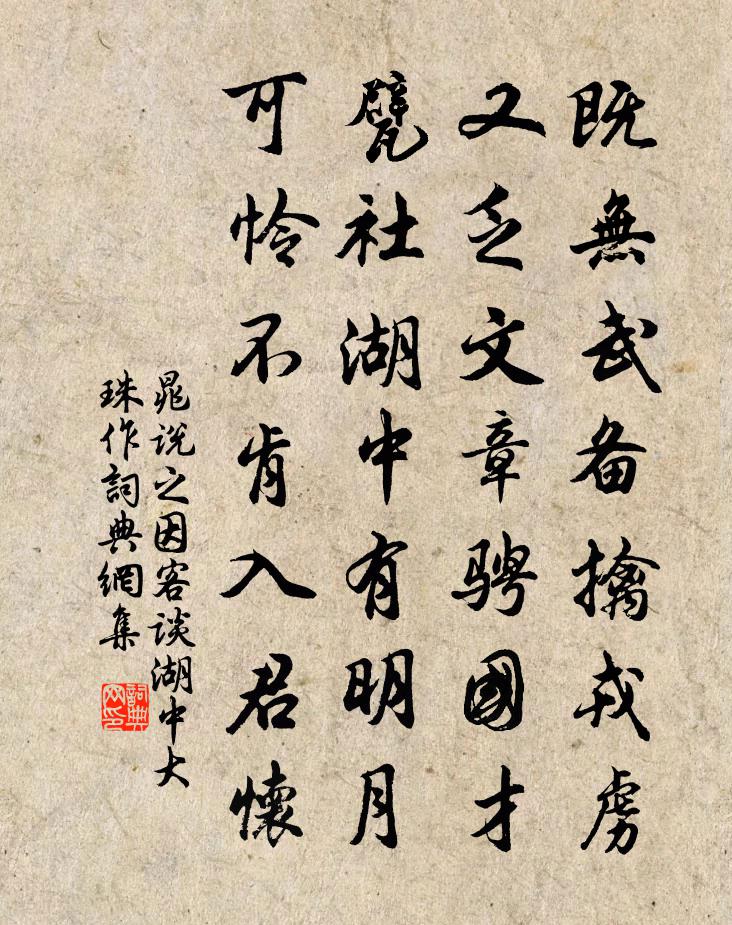 既無武备擒戎虜
又乏文章騁國才
甓社湖中有明月
可怜不肯入君懷
晁說之因客谈湖中大
珠作詞典網集
詞典网印